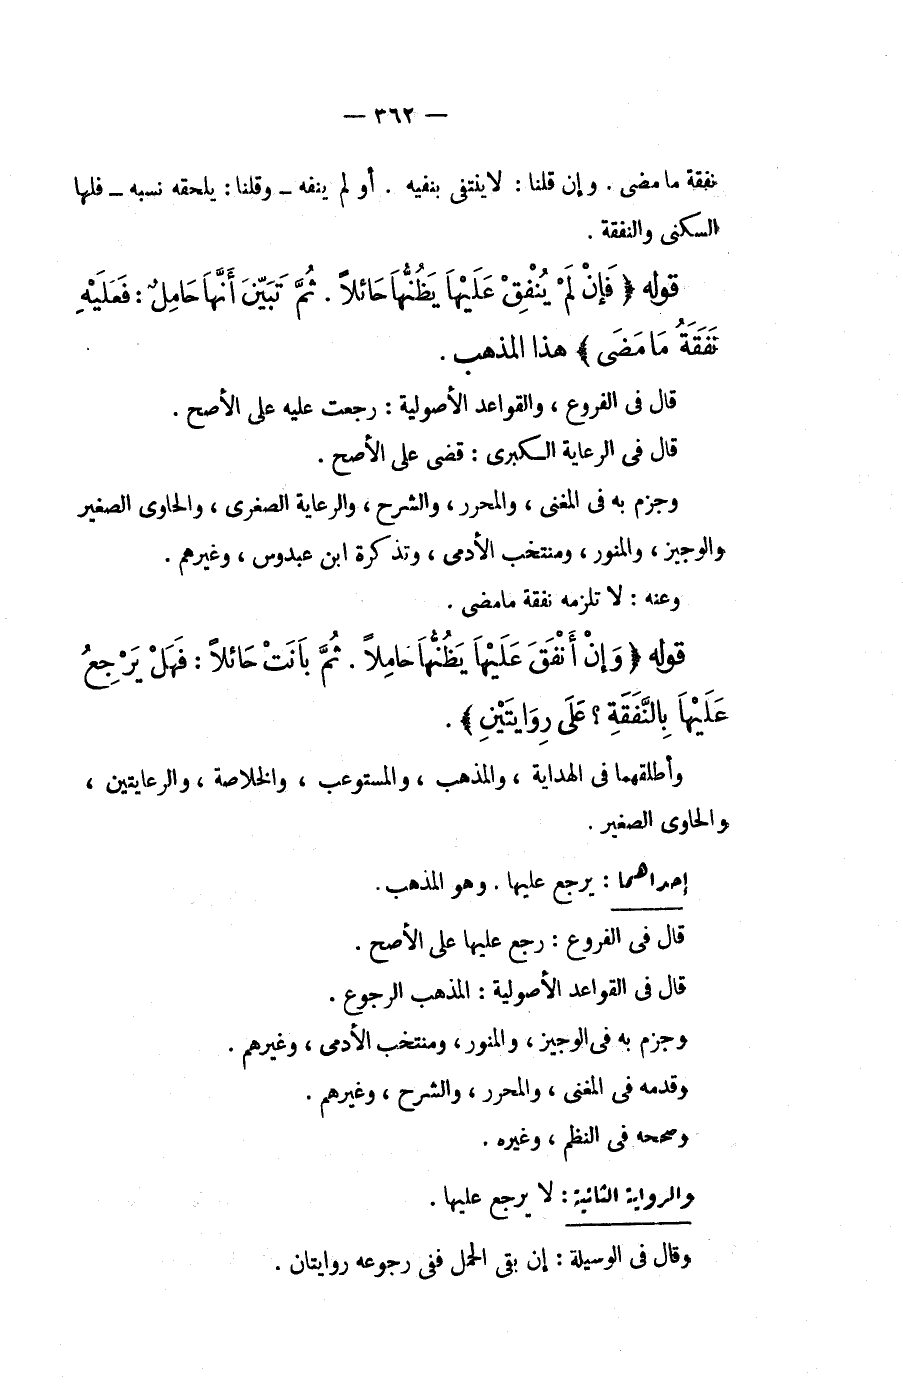 — ٣٦٢ —
نفقة ما مضى . وإن قلنا : لاينتفى بنفيه . أو لم ينفه ــ وقلنا : يلحقه نسبه ــ فلها
السكنى والنفقة .
قوله ﴿ فَإِنْ لَمْ يُنْفِقْ عَلَيْهَا يَظُنُّهَا حَائلاً . ثُمَّ تَبَيّنَ أَنَّهَا حَامِلٌ : فَعَلَيْهِ
نَفَقَةُ مَا مَضَى ﴾ هذا المذهب .
قال فى الفروع ، والقواعد الأصولية : رجعت عليه على الأصح .
قال فى الرعاية الكبرى : قضى على الأصح .
وجزم به فى المغنى ، والمحرر ، والشرح ، والرعاية الصغرى ، والحاوى الصغير
والوجيز ، والمنور ، ومنتخب الأدمى ، وتذكرة ابن عبدوس ، وغيرهم .
وعنه : لا تلزمه نفقة مامضى .
قوله ﴿ وَإِنْ أَنْفَقَ عَلَيْهَا يَظُنُّهَا حَامِلاً . ثُمَّ بَانَتْ حَائلاً : فَهَلْ يَرْجِعُ
عَلَيْهَا بِالنَّفَقَةِ ؟ عَلَى رِوَايتَيْنِ ﴾ .
وأطلقهما فى الهداية ، والمذهب ، والمستوعب ، والخلاصة ، والرعايتين ،
والحاوى الصغير .
إحداهما : يرجع عليها . وهو المذهب .
قال فى الفروع : رجع عليها على الأصح .
قال فى القواعد الأصولية : المذهب الرجوع .
وجزم به فى الوجيز ، والمنور ، ومنتخب الأدمى ، وغيرهم .
وقدمه فى المغنى ، والمحرر ، والشرح ، وغيرهم .
وصححه فى النظم ، وغيره .
والرواية الثانية : لا يرجع عليها .
وقال فى الوسيلة : إن بقى الحمل ففى رجوعه روايتان .